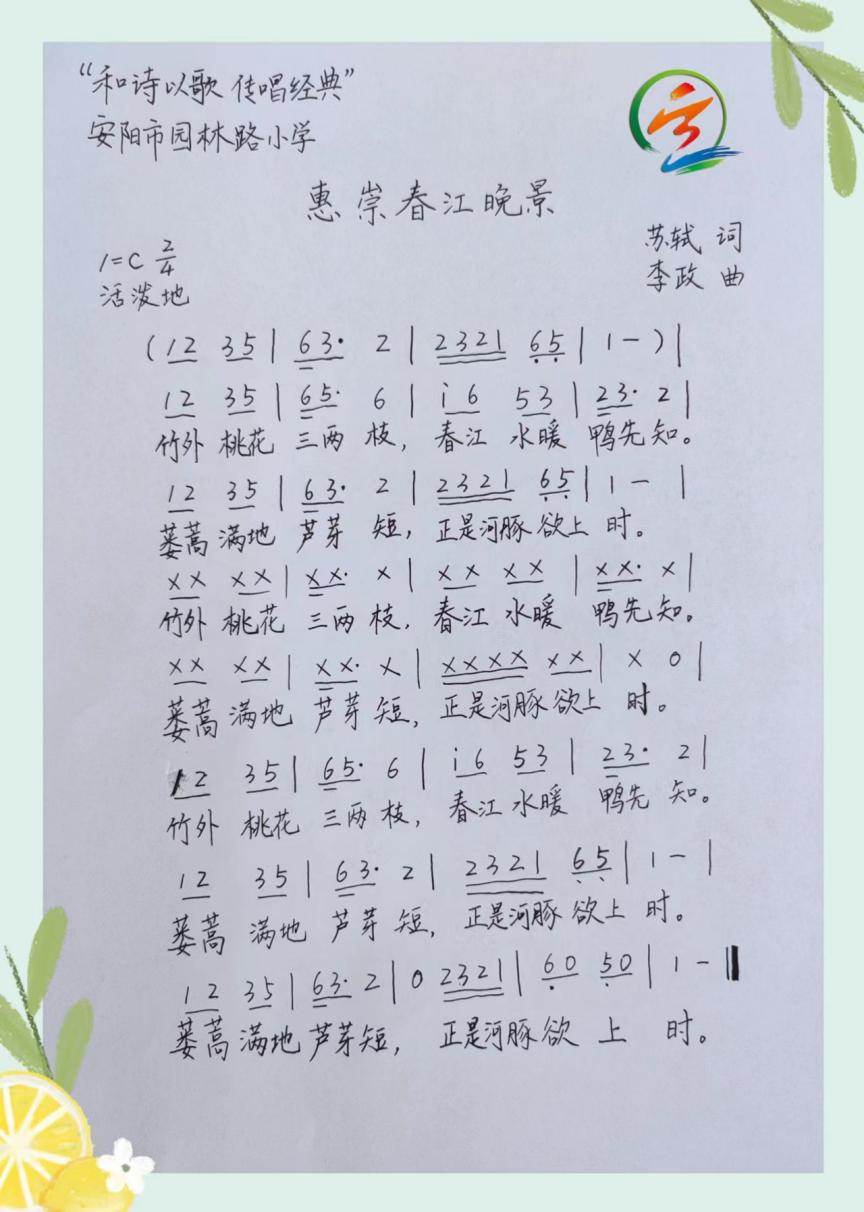 “和诗以歌 传唱经典”
安阳市园林路小学
惠崇春江晚景
苏轼 词
1=C 2/4
李政 曲
活泼地
(12 35 | 63· 2 | 2321 65 | 1 - ) |
12 35 | 65· 6 | i6 53 | 23· 2 |
竹外 桃花 三两 枝, 春江 水暖 鸭先知。
12 35 | 63· 2 | 2321 65 | 1 - |
蒌蒿 满地 芦芽 短, 正是河豚 欲上 时。
XX XX | XX· X | XX XX | XX· X |
竹外 桃花 三两 枝, 春江 水暖 鸭先知。
XX XX | XX· X | XXXX XX | X 0 |
蒌蒿 满地 芦芽 短, 正是河豚 欲上 时。
12 35 | 65· 6 | i6 53 | 23· 2 |
竹外 桃花 三两 枝, 春江 水暖 鸭先 知。
12 35 | 63· 2 | 2321 65 | 1 - |
蒌蒿 满地 芦芽 短, 正是河豚 欲上 时。
12 35 | 63· 2 | 0 2321 | 60 50 | 1 - ‖
蒌蒿 满地 芦芽短, 正是河豚 欲 上 时。